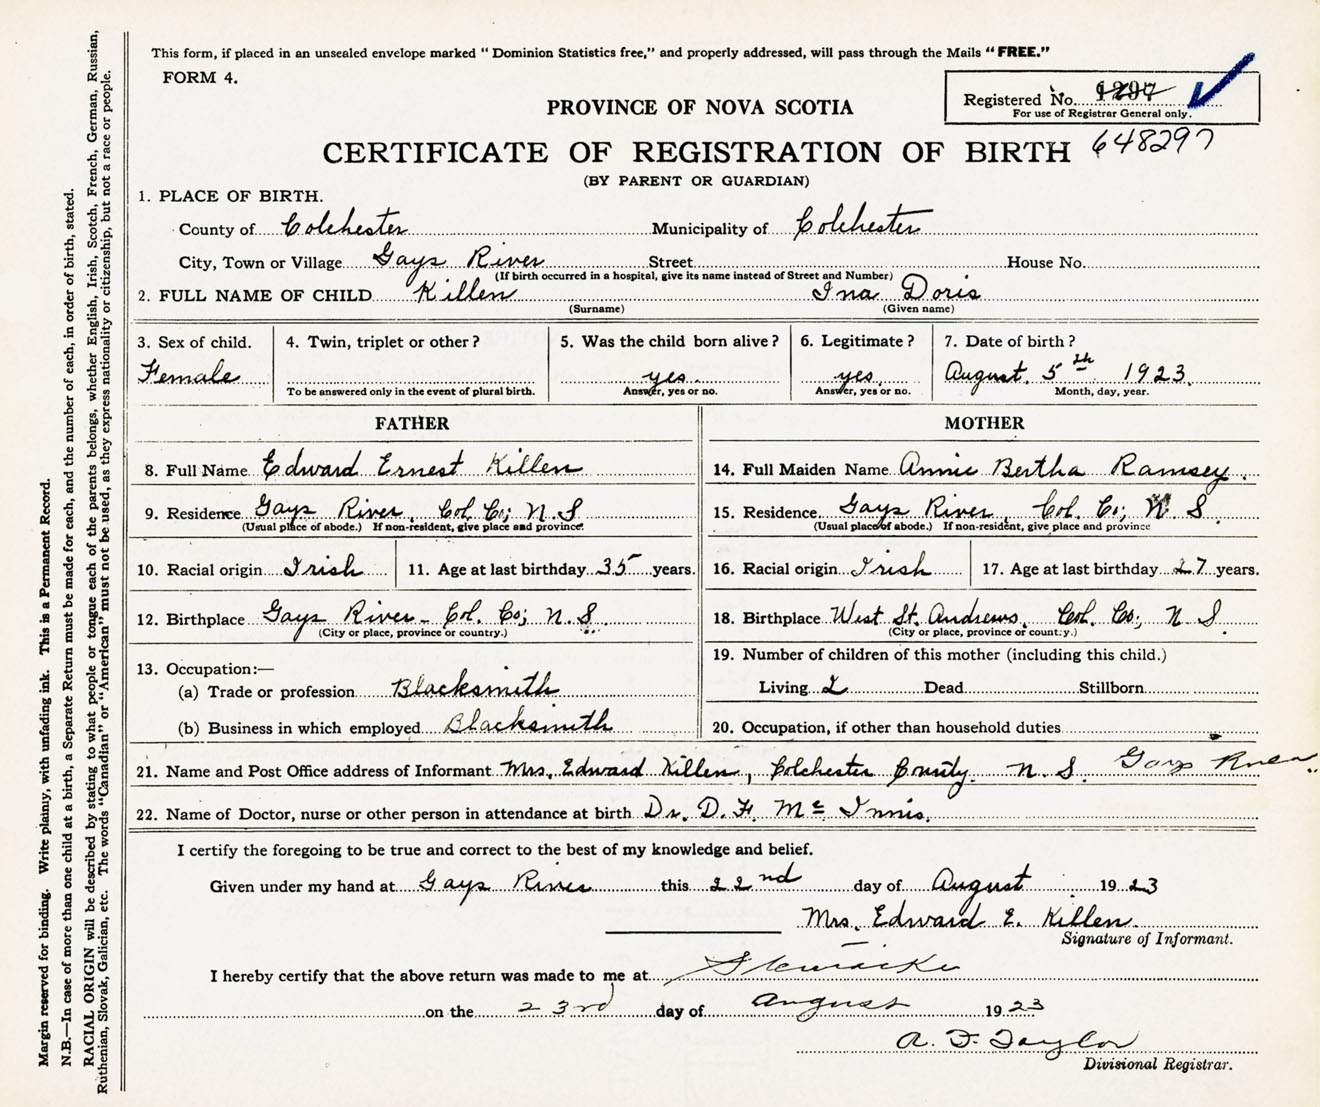 This form, if placed in an unsealed envelope marked "Dominion Statistics free," and properly addressed, will pass through the Mails "FREE."
FORM 4.
Registered No. 1297
For use of Registrar General only.
648297
PROVINCE OF NOVA SCOTIA
CERTIFICATE OF REGISTRATION OF BIRTH
(BY PARENT OR GUARDIAN)
1. PLACE OF BIRTH.
County of Colchester Municipality of Colchester
City, Town or Village Gays River Street House No.
(If birth occurred in a hospital, give its name instead of Street and Number)
2. FULL NAME OF CHILD Killen Ina Doris
(Surname) (Given name)
3. Sex of child. 4. Twin, triplet or other? 5. Was the child born alive? 6. Legitimate? 7. Date of birth?
Female yes. yes. August 5th 1923.
To be answered only in the event of plural birth. Answer, yes or no. Answer, yes or no. Month, day, year.
FATHER MOTHER
8. Full Name Edward Ernest Killen
9. Residence Gays River, Col. Co; N.S
(Usual place of abode.) If non-resident, give place and province.
10. Racial origin Irish 11. Age at last birthday 35 years.
12. Birthplace Gays River - Col. Co; N.S.
(City or place, province or country.)
13. Occupation:—
(a) Trade or profession Blacksmith
(b) Business in which employed Blacksmith
14. Full Maiden Name Annie Bertha Ramsey.
15. Residence Gays River, Col. Co; N. S.
(Usual place of abode.) If non-resident, give place and province
16. Racial origin Irish 17. Age at last birthday 27 years.
18. Birthplace West St. Andrews, Col. Co; N. S.
(City or place, province or country.)
19. Number of children of this mother (including this child.)
Living 2 Dead Stillborn
20. Occupation, if other than household duties
21. Name and Post Office address of Informant Mrs. Edward Killen, Colchester County. N. S. Gays River.
22. Name of Doctor, nurse or other person in attendance at birth Dr. D. F. Mc Innis.
I certify the foregoing to be true and correct to the best of my knowledge and belief.
Given under my hand at Gays River this 22nd day of August 1923
Mrs. Edward E. Killen.
Signature of Informant.
I hereby certify that the above return was made to me at Stewiacke
on the 23rd day of August 1923
A. F. Taylor
Divisional Registrar.
Margin reserved for binding. Write plainly, with unfading ink. This is a Permanent Record.
N.B.—In case of more than one child at a birth, a Separate Return must be made for each, and the number of each, in order of birth, stated.
RACIAL ORIGIN will be described by stating to what people or tongue each of the parents belongs, whether English, Irish, Scotch, French, German, Russian,
Ruthenian, Slovak, Galician, etc. The words "Canadian" or "American" must not be used, as they express nationality or citizenship, but not a race or people.